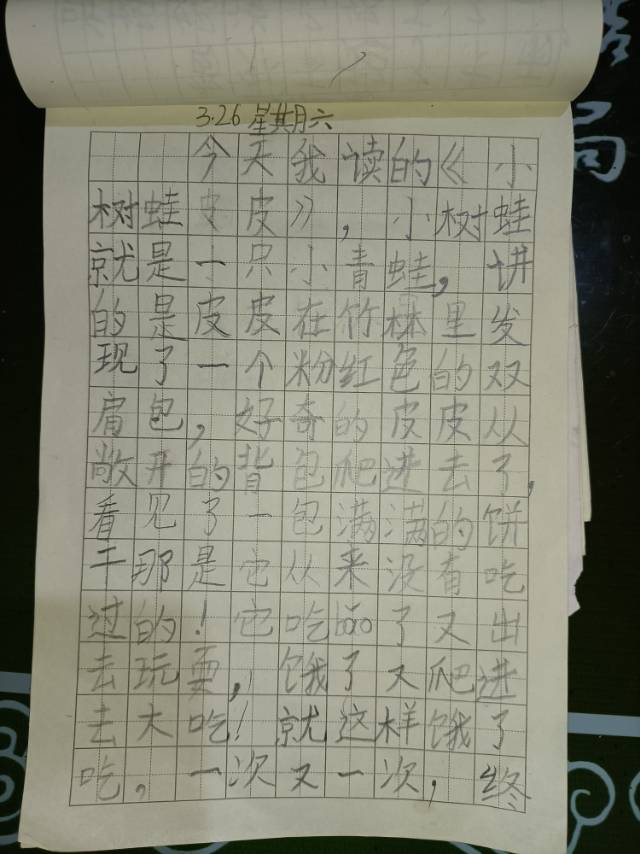 3.26 星期六
今天我读的《小
树蛙皮皮》，小树蛙
就是一只小青蛙，讲
的是皮皮在竹林里发
现了一个粉红色的双
肩包，好奇的皮皮从
敞开的背包爬进去了，
看见了一包满满的饼
干那是它从来没有吃
过的！它吃bao了又出
去玩耍，饿了又爬进
去大吃！就这样饿了
吃，一次又一次，终
局